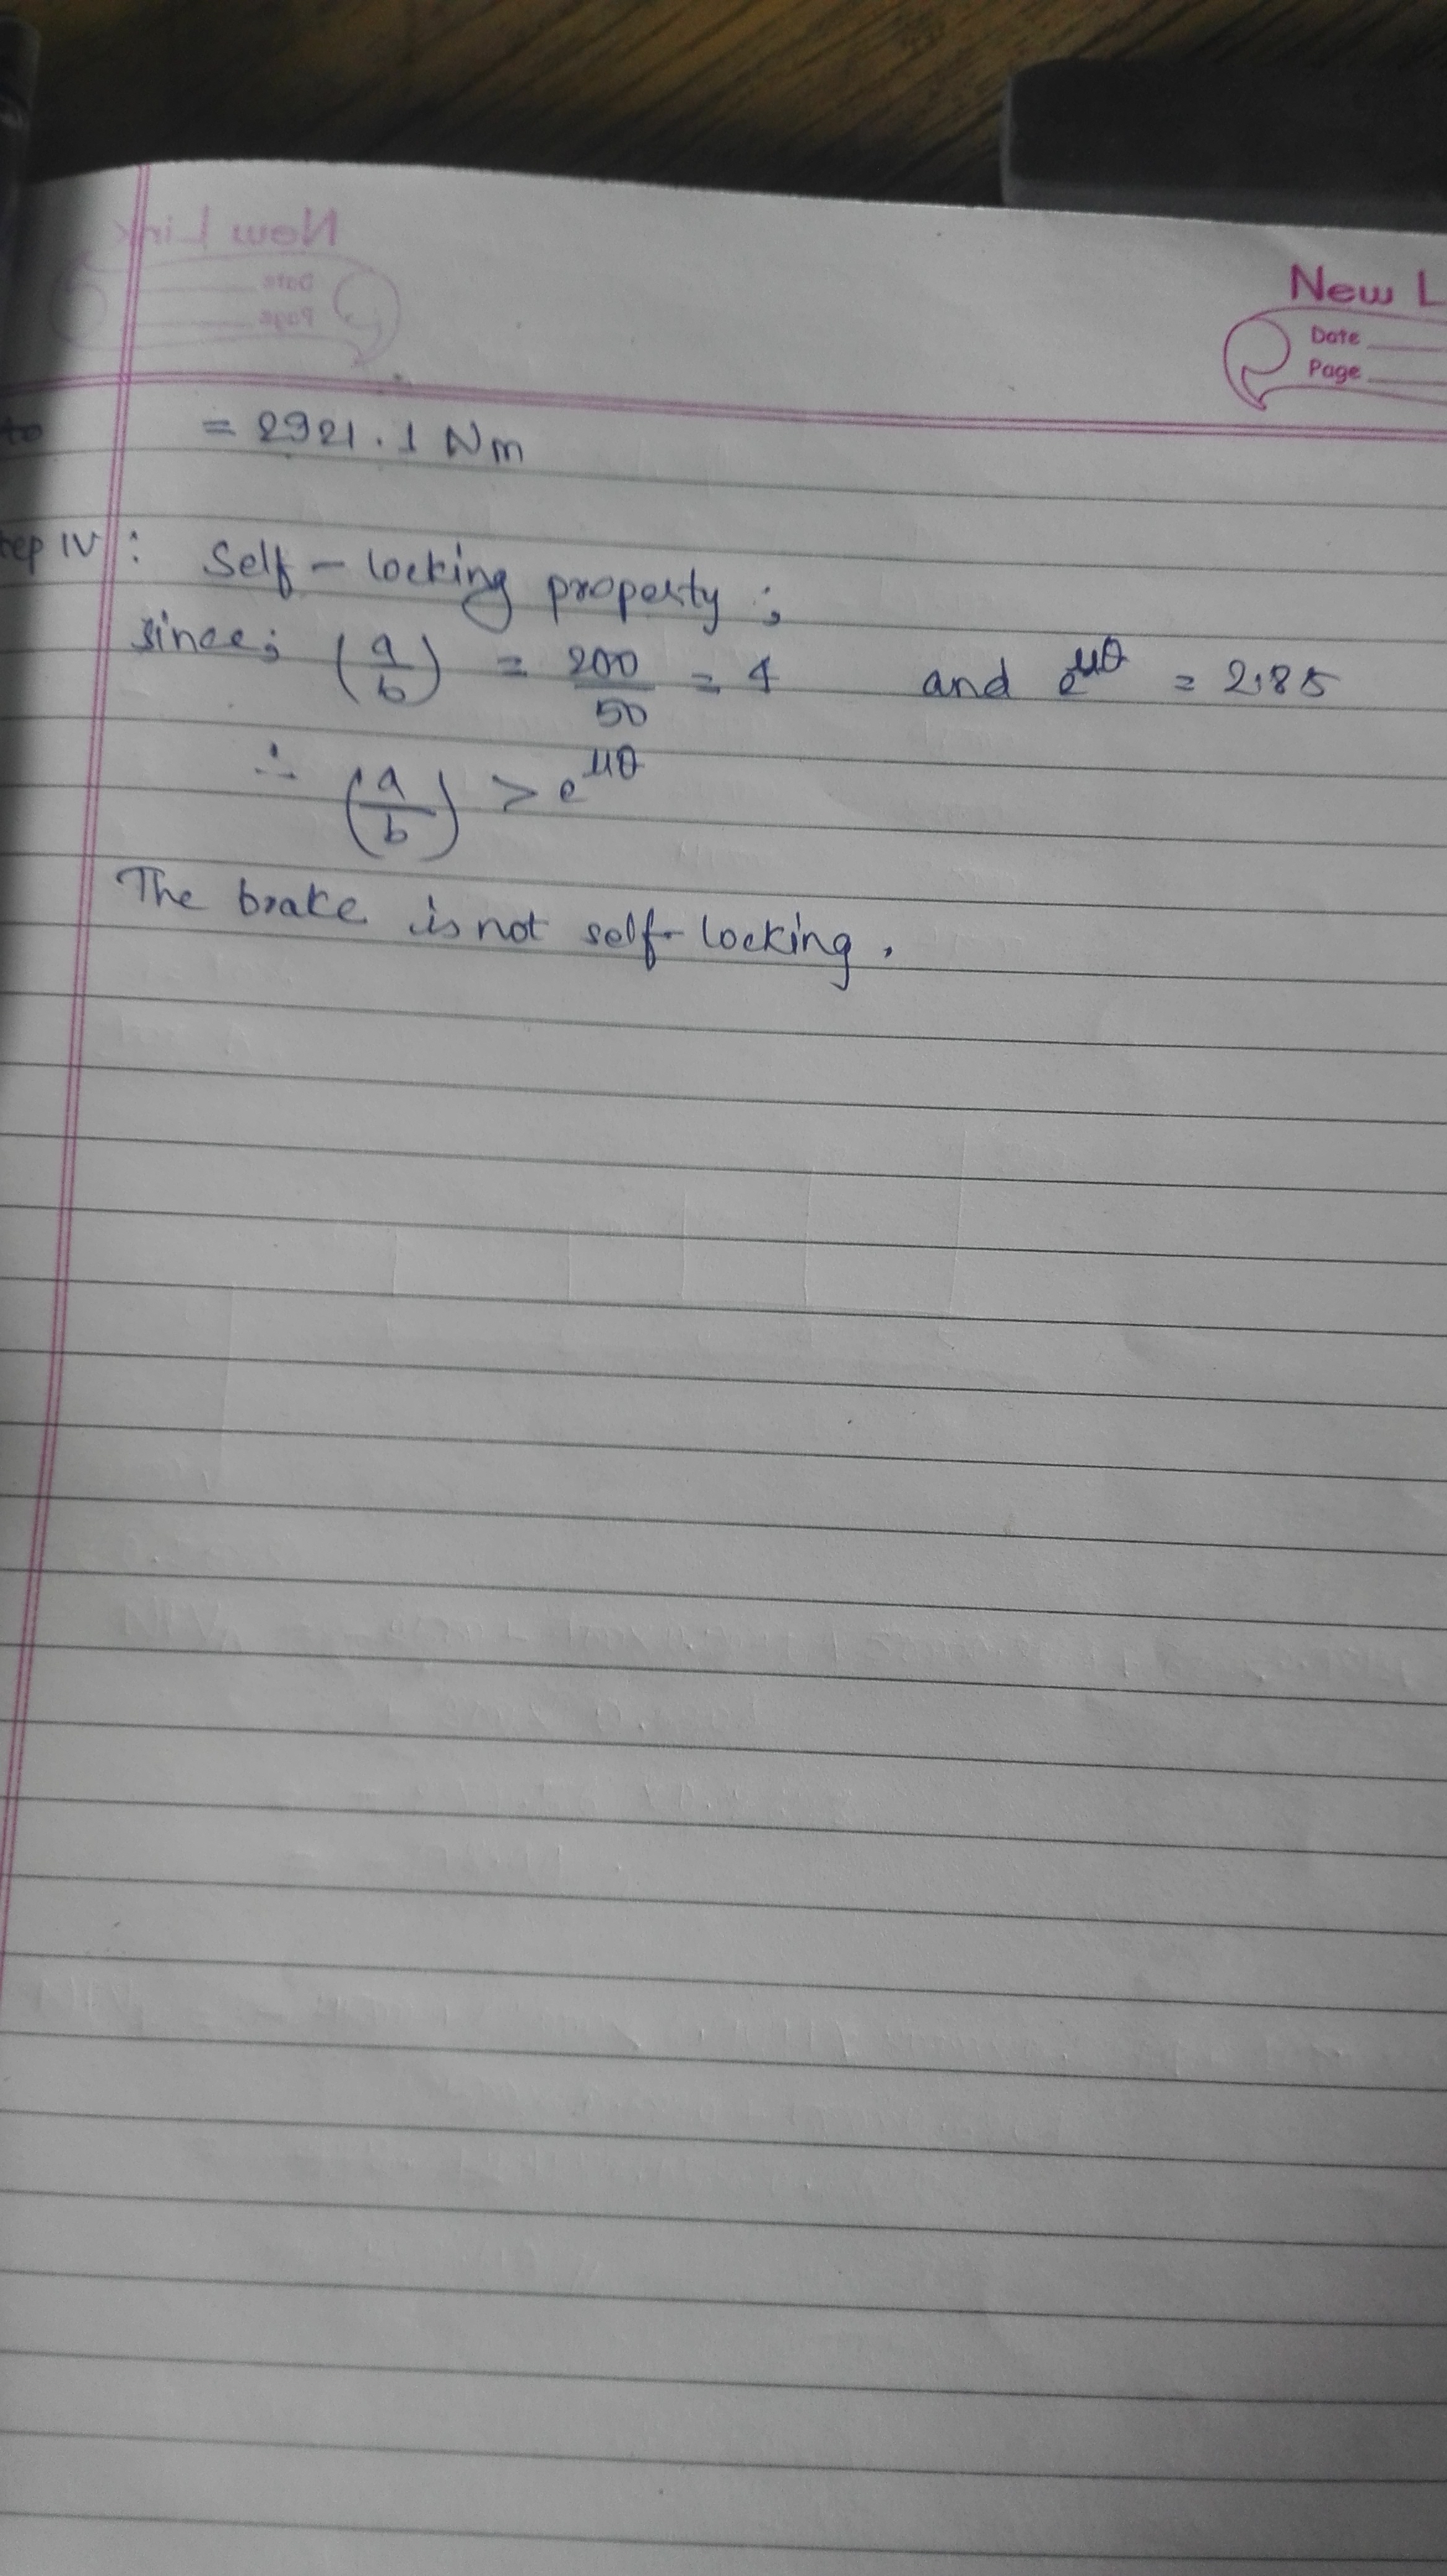 New L
Date
Page
to = 2921.1 Nm
tep IV : Self-locking property;
since; (a/b) = 200/50 = 4 and e^μθ = 2.85
∴ (a/b) > e^μθ
The brake is not self-locking.